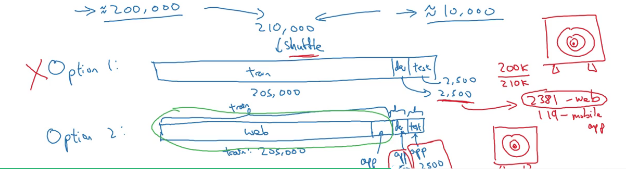 → ≈200,000
→ ≈10,000
210,000
shuttle
X Option 1:
train
dev
test
2,500
2,500
205,000
200K
210K
2381 - web
119 - mobile
app
Option 2:
train
web
app
dev
test
train: 205,000
app
app
app
2500